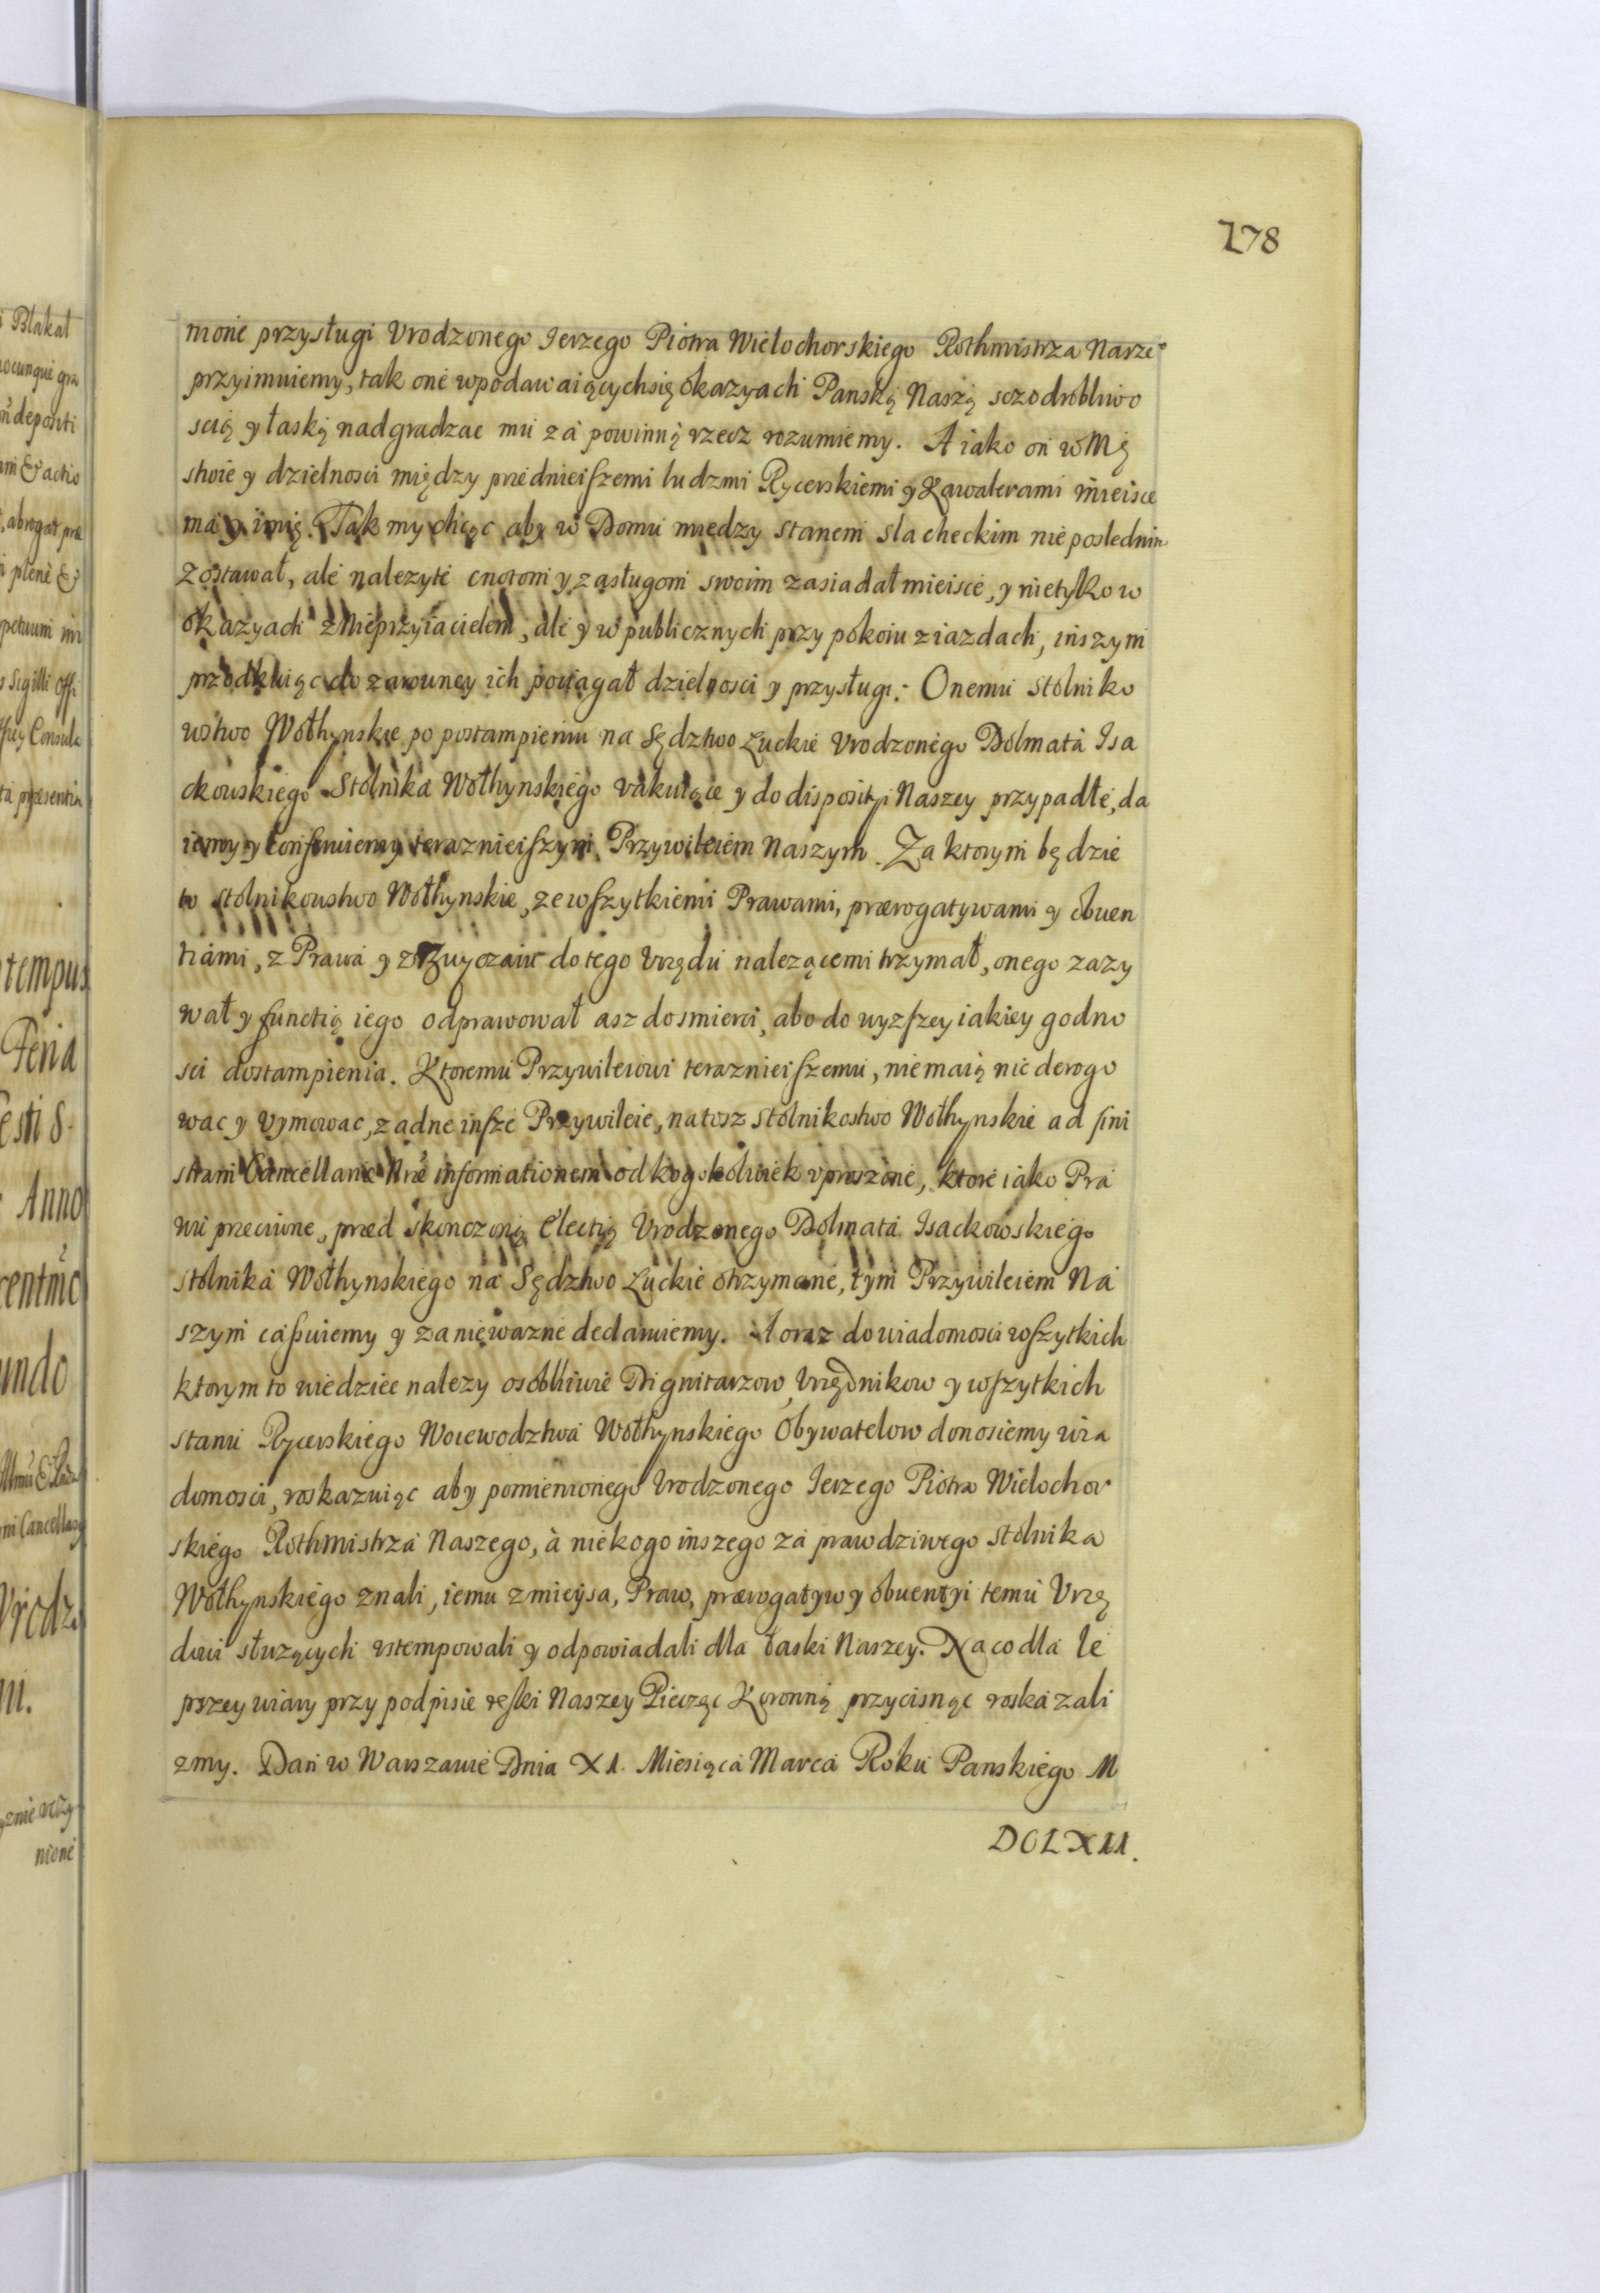 178
nione przysługi Vrodzonego Ierzego Piotra Wielochorskiego Rothmistrza Narze°
przyimuiemy, tak one wpodawaiącychsię okazyach Panską Naszą sczodrobliwo
scią y łaską nadgradzac mu za powinną rzecz rozumiemy. A iako on w Mę
stwie y dzielnosci między przednieiszemi ludzmi Rycerskiemi y Kawalerami mieisce
ma y imię. Tak my chcąc aby w Domu miedzy stanem slacheckim nie poslednim
zostawał, ale nalezyte cnotom y zasługom swoim zasiadał mieisce, y nietylko w
okazyach z Nieprzyiacielem, ale y w publicznych przy pokoiu ziazdach, inszym
przodkuiąc do zarowney ich pociągał dzielnosci y przysługi: Onemu Stolniko
wstwo Wołhynskie po postampieniu na Sędztwo Łuckie Vrodzonego Dolmata Isa
ckowskiego Stolnika Wołhynskiego vakuiące y do disposityi Naszey przypadłe, da
iemy y conferuiemy terazniejszym Przywileiem Naszym. Za ktorym będzie
to stolnikowstwo Wołhynskie, ze wszytkiemi Prawami, prærogatywami y obuen
tiami, z Prawa y z Zwyczaiu do tego Vrzędu nalezącemi trzymał, onego zazy
wał y functią iego odprawował asz do smierci, abo do wyzszey iakiey godno
sci dostampienia. Ktoremu Przywileiowi terazniejszemu, nie maią nic derogo
wac y vymowac, zadne insze Przywileie, na tosz Stolnikostwo Wołhynskie ad sini
stram Cancellariæ Nræ informationem od kogokolwiek vproszone, ktore iako Pra
wu przeciwne, przed skonczoną Electią Vrodzonego Dolmata Isackowskiego
stolnika Wołhynskiego na Sędztwo Łuckie otrzymane, tym Przywileiem Na
szym cassuiemy y za niewazne declaruiemy. A oraz do wiadomosci wszytkich
ktorym to wiedziec nalezy osobliwie Dignitarzow, Vrzędnikow y wszytkich
stanu Rycerskiego Woiewodztwa Wołhynskiego Obywatelow donosiemy wia
domosci, roskazuiąc aby pomienionego Vrodzonego Ierzego Piotra Wielochor
skiego Rothmistrza Naszego, à niekogo inszego za prawdziwego stolnika
Wołhynskiego znali, iemu z mieysa, Praw, prærogatyw y obuentyi temu Vrzę
dowi słuzących vstempowali y odpowiadali dla łaski Naszey. Na co dla le
pszey wiary przy podpisie ręki Naszey Pieczęc Koronną przycisnąc roskazali
zmy. Dan w Warszawie Dnia XI. Miesiąca Marca Roku Panskiego M
DCLXII.